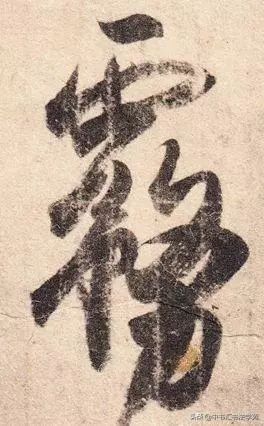 霧
头条@中书汇书法学苑